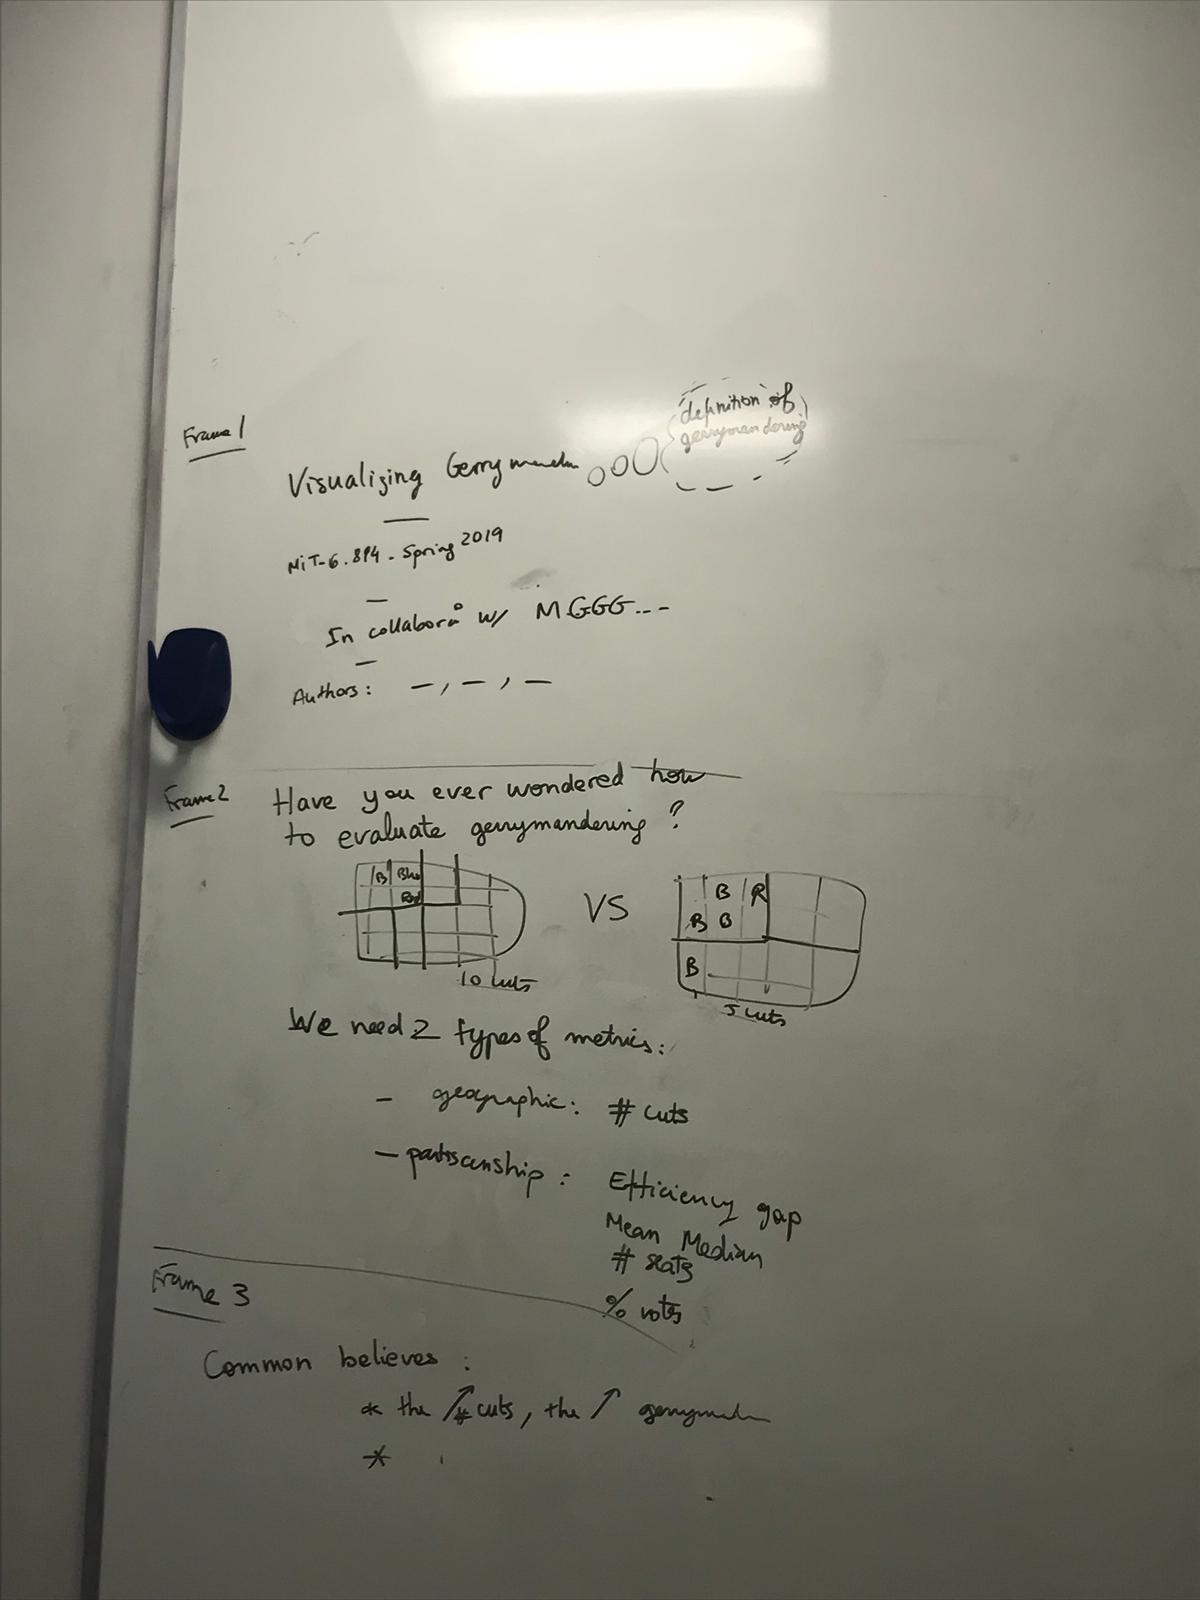 Frame 1
definition of
gerrymandering
Visualizing Gerrymander
MiT-6.894 - Spring 2019
In collabora° w/ MGGG...
Authors: —, —, —
Frame 2
Have you ever wondered how
to evaluate gerrymandering ?
B Blue
Red
10 cuts
VS
B R
B B
B
5 cuts
We need 2 types of metrics:
- geographic: # cuts
- partisanship : Efficiency gap
Mean Median
# seats
% votes
Frame 3
Common believes :
* the ↗ # cuts, the ↗ gerrymander
*